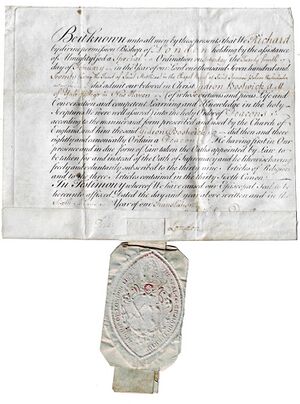 Be it known unto all men by these presents that We Richard
by divine permission Bishop of London holding by the assistance
of Almighty God a Special Ordination on
day of in the Year of our Lord one thousand Seven hundred and
Seventy being the Feast of Saint Matthias in the Chapel
did admit our beloved in Christ Gideon Bostwick A.M.
of Yale College in New Haven for his virtuous and pious Life and
Conversation and competent Learning and Knowledge in the holy
Scriptures Were well assured into the holy Order of Deacons
according to the manner and form prescribed and used by the Church of
England And him the said Gideon Bostwick then and there
rightly and canonically Ordain a Deacon He having first in Our
presence and in due form of Law taken the Oaths appointed by Law to
be taken for and instead of the Oath of Supremacy and he likewise having
freely and voluntarily subscribed to the thirty nine Articles of Religion
and to the three Articles contained in the thirty Sixth Canon
In Testimony whereof We have caused our Episcopal Seal to be
hereunto affixed Dated the day and year above written and in the
Sixth Year of our Translation
London